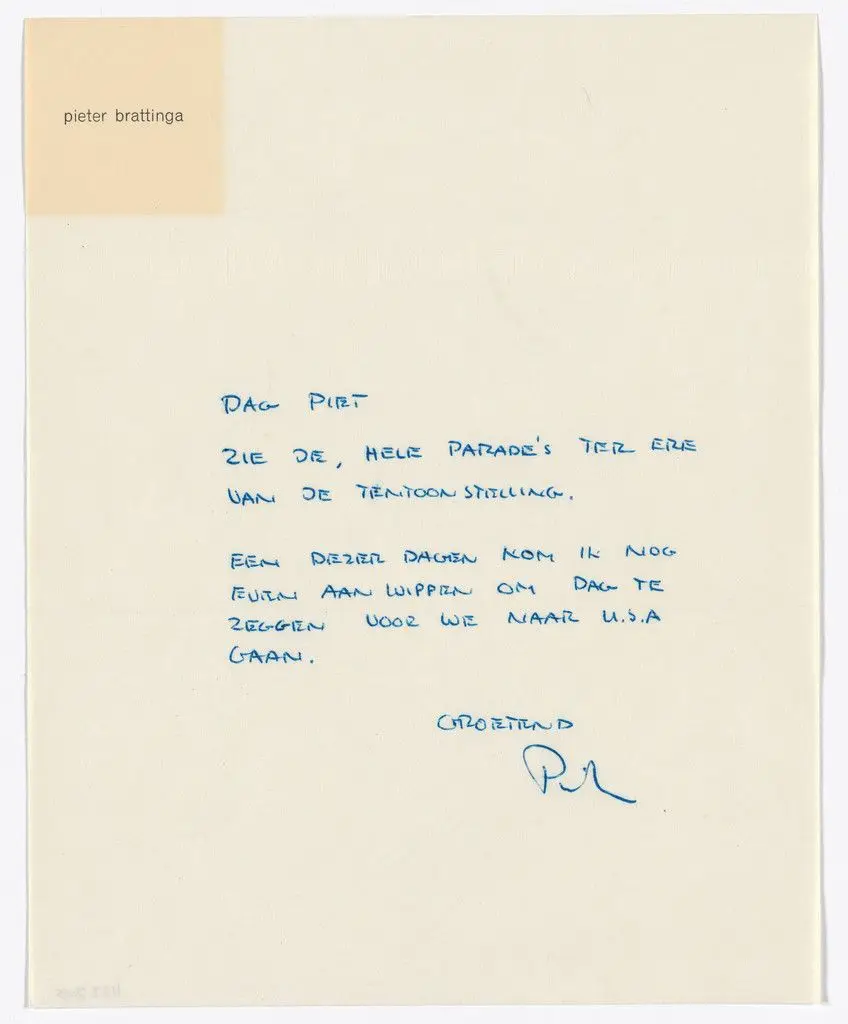 pieter brattinga
DAG PIET
ZIE DE, HELE PARADE'S TER ERE
VAN DE TENTOONSTELLING.
EEN DEZER DAGEN KOM IK NOG
EVEN AAN WIPPEN OM DAG TE
ZEGGEN VOOR WE NAAR U.S.A
GAAN.
GROETEND